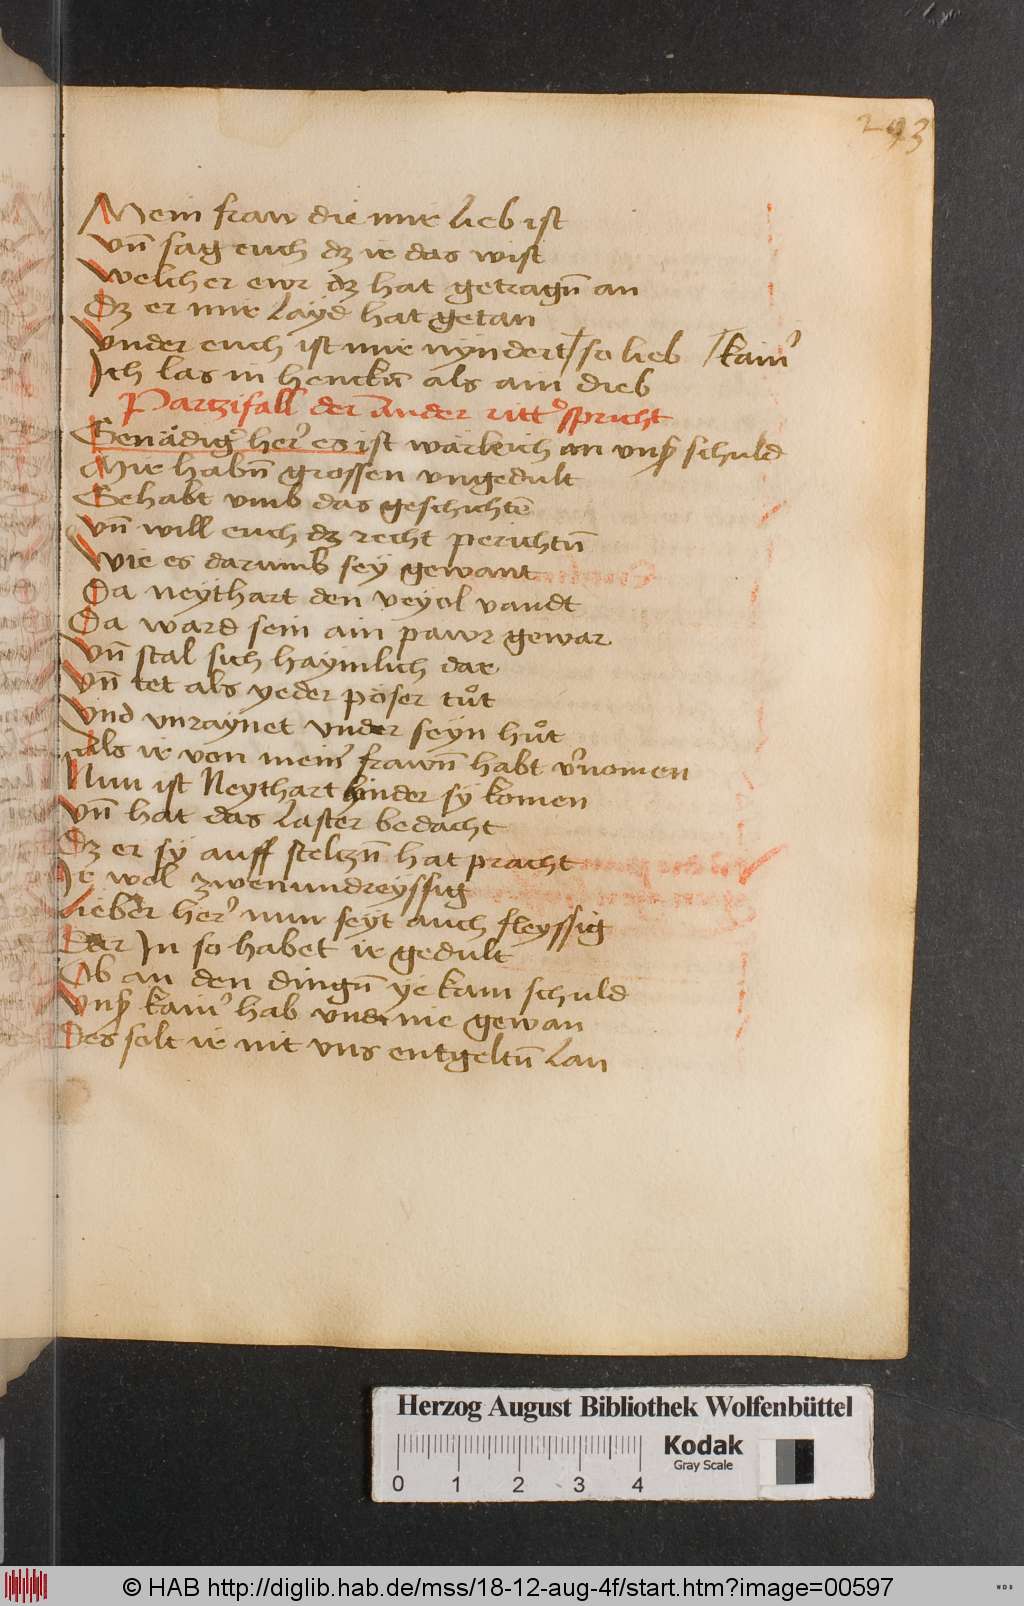 293
Mein fraw die mir lieb ist
vn̄ sag euch dz ir das wist
welcher ewr dz hat getragn̄ an
Dz er mir layd hat getan
vnder euch ist mir nyndert / so lieb / kainˀ
Ich las in henckn̄ als ain dieb
Partzifall der ander rittˀ spricht
Genädigˀ herˀ es ist warleich an vnsˀ schuld
Mir habn̄ grossen vngedult
Gehabt vmb das geschichtē
vn̄ will euch dz recht perichtn̄
Wie es darumb sey gewant
Da neythart den veyol vandt
Da ward sein ain pawr gewar
vn̄ stal sich haymlich dar
vn̄ tet als yeder pöser tuͦt
Vnd vnraynet vnder seyn huͦt
als ir von meinˀ frawn̄ habt vˀnomen
Nun ist Neythart hinder sy komen
vn̄ hat das laster bedacht
Dz er sy auff steltzn̄ hat pracht
Ir wol zwenundreyssig
Lieber herˀ nun seyt auch fleyssig
Dar In so habet ir gedult
Ob an den dingn̄ ye kam schuld
vnsˀ kainˀ hab vnd nie gewan
Des solt ir nit vns entgeltn̄ lan
Herzog August Bibliothek Wolfenbüttel
Kodak
Gray Scale
0 1 2 3 4
© HAB http://diglib.hab.de/mss/18-12-aug-4f/start.htm?image=00597